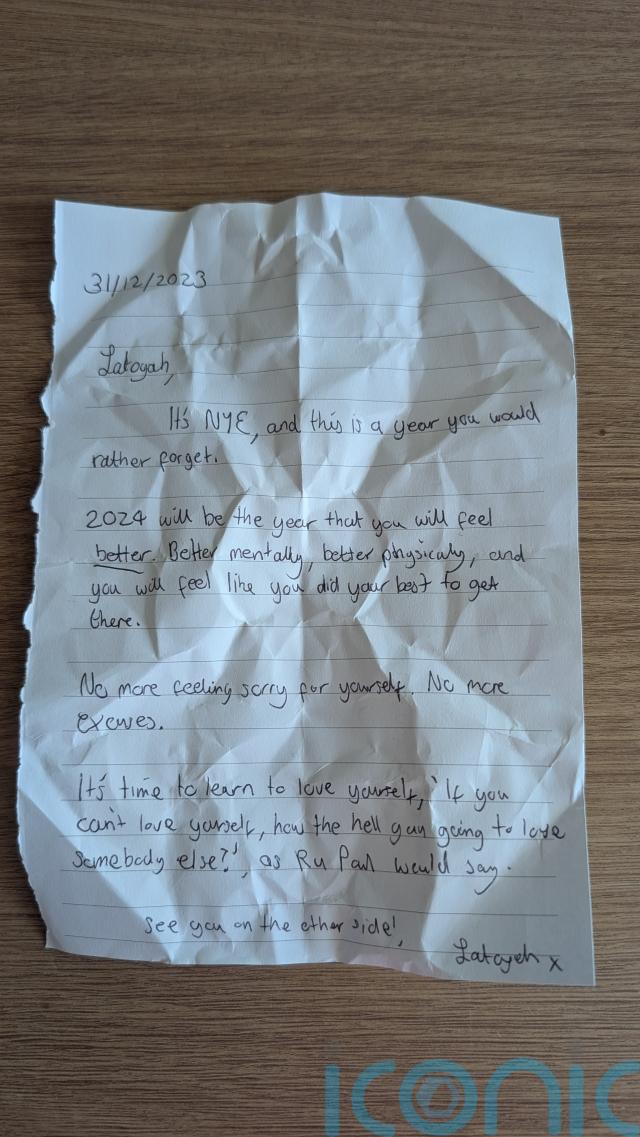 31/12/2023
Latoyah,
It's NYE, and this is a year you would
rather forget.
2024 will be the year that you will feel
better. Better mentally, better physicaly, and
you will feel like you did your best to get
there.
No more feeling sorry for yourself. No more
excuses.
It's time to learn to love yourself, 'If you
can't love yourself, how the hell gun going to love
somebody else?', as Ru Paul would say.
See you on the other side!,
Latoyah x
ICONIC